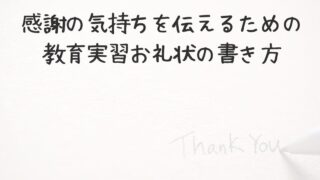 感謝の気持ちを伝えるための
教育実習お礼状の書き方
Thank You